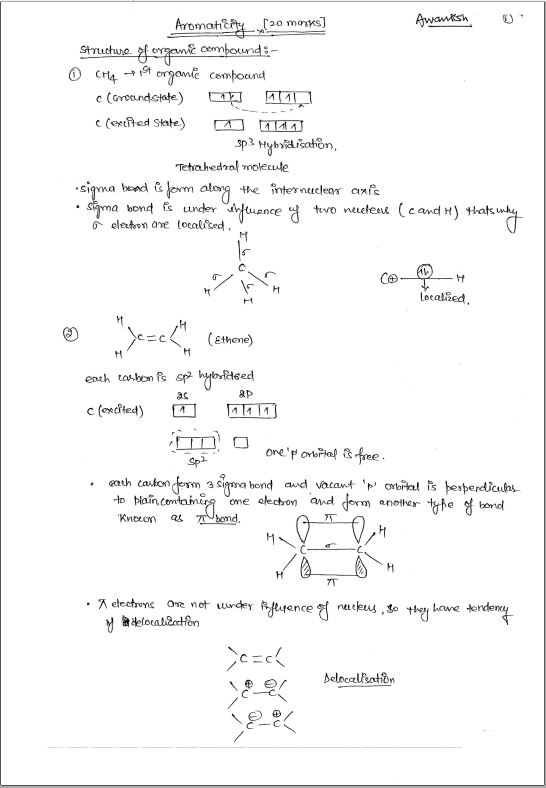 Aromaticity [20 marks]
Awanksh ①
Structure of organic compound:-
① CH4 → 1st organic compound
C (Ground state) 1↓ 1 1
C (excited state) 1 1 1 1
sp3 Hybridisation.
Tetrahedral molecule
• sigma bond is form along the internuclear axis
• sigma bond is under influence of two nucleus (C and H) thats why
σ electron are localised.
H
σ
C
σ σ σ
H H H
C⊕ 1↓ H
Localized.
② H H
C=C (Ethene)
H H
each carbon is sp2 hybridised
2S 2P
C (excited) 1 1 1 1
sp2 one 'p' orbital is free.
• each carbon form 3 sigma bond and vacant 'p' orbital is perpendicular
to plain, containing one electron and form another type of bond
known as π bond.
π
H H
C σ C
H H
π
• π electrons are not under influence of nucleus, so they have tendency
of delocalization
C=C
⊕ ⊖
C–C Delocalisation
⊖ ⊕
C–C